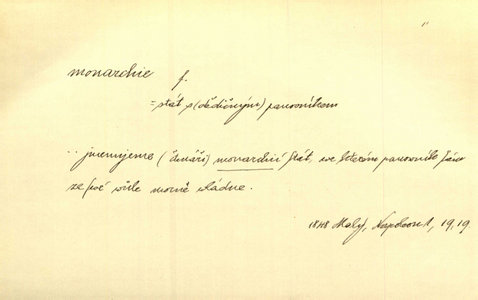 monarchie f.
= stát s (dědičným) panovníkem
.. jmenujeme ( čtenáři) monarchií stát, ve kterém panovník sám
ze své vůle mocně vládne.
1848 Malý, Napoleon I, 19, 19.